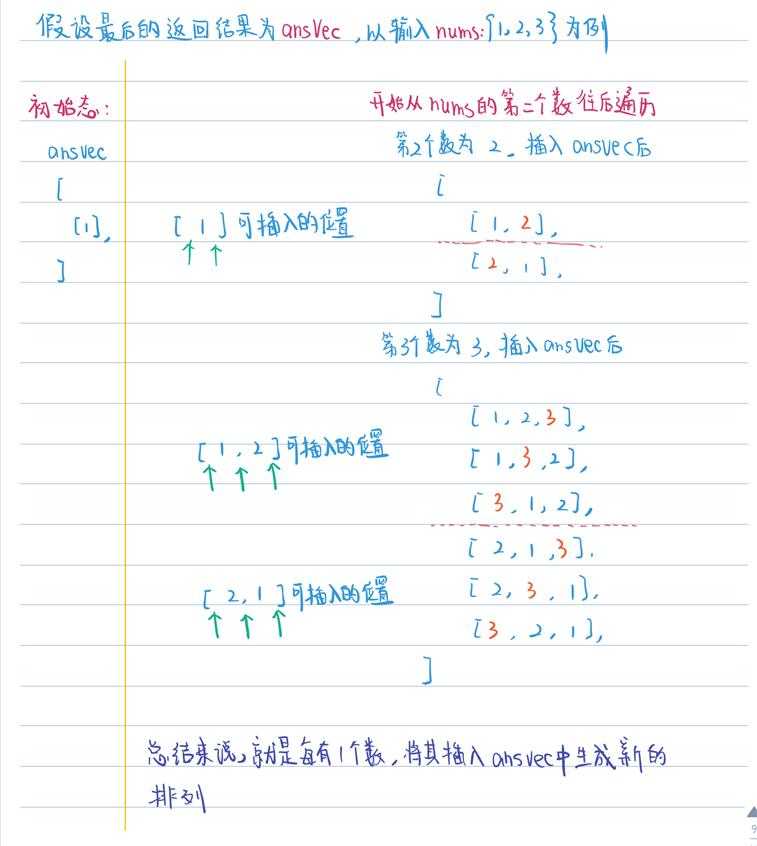 假设最后的返回结果为ansVec，以输入nums:{1,2,3}为例
初始态:
ansvec
[
[1],
]
开始从nums的第二个数往后遍历
第2个数为 2. 插入ansvec后
[
[1]可插入的位置
[1,2],
[2,1],
]
第3个数为 3, 插入ansvec后
[
[1,2,3],
[1,2]可插入的位置
[1,3,2],
[3,1,2],
[2,1,3].
[2,1]可插入的位置
[2,3,1],
[3,2,1],
]
总结来说，就是每有1个数，将其插入ansvec中生成新的
排列
9